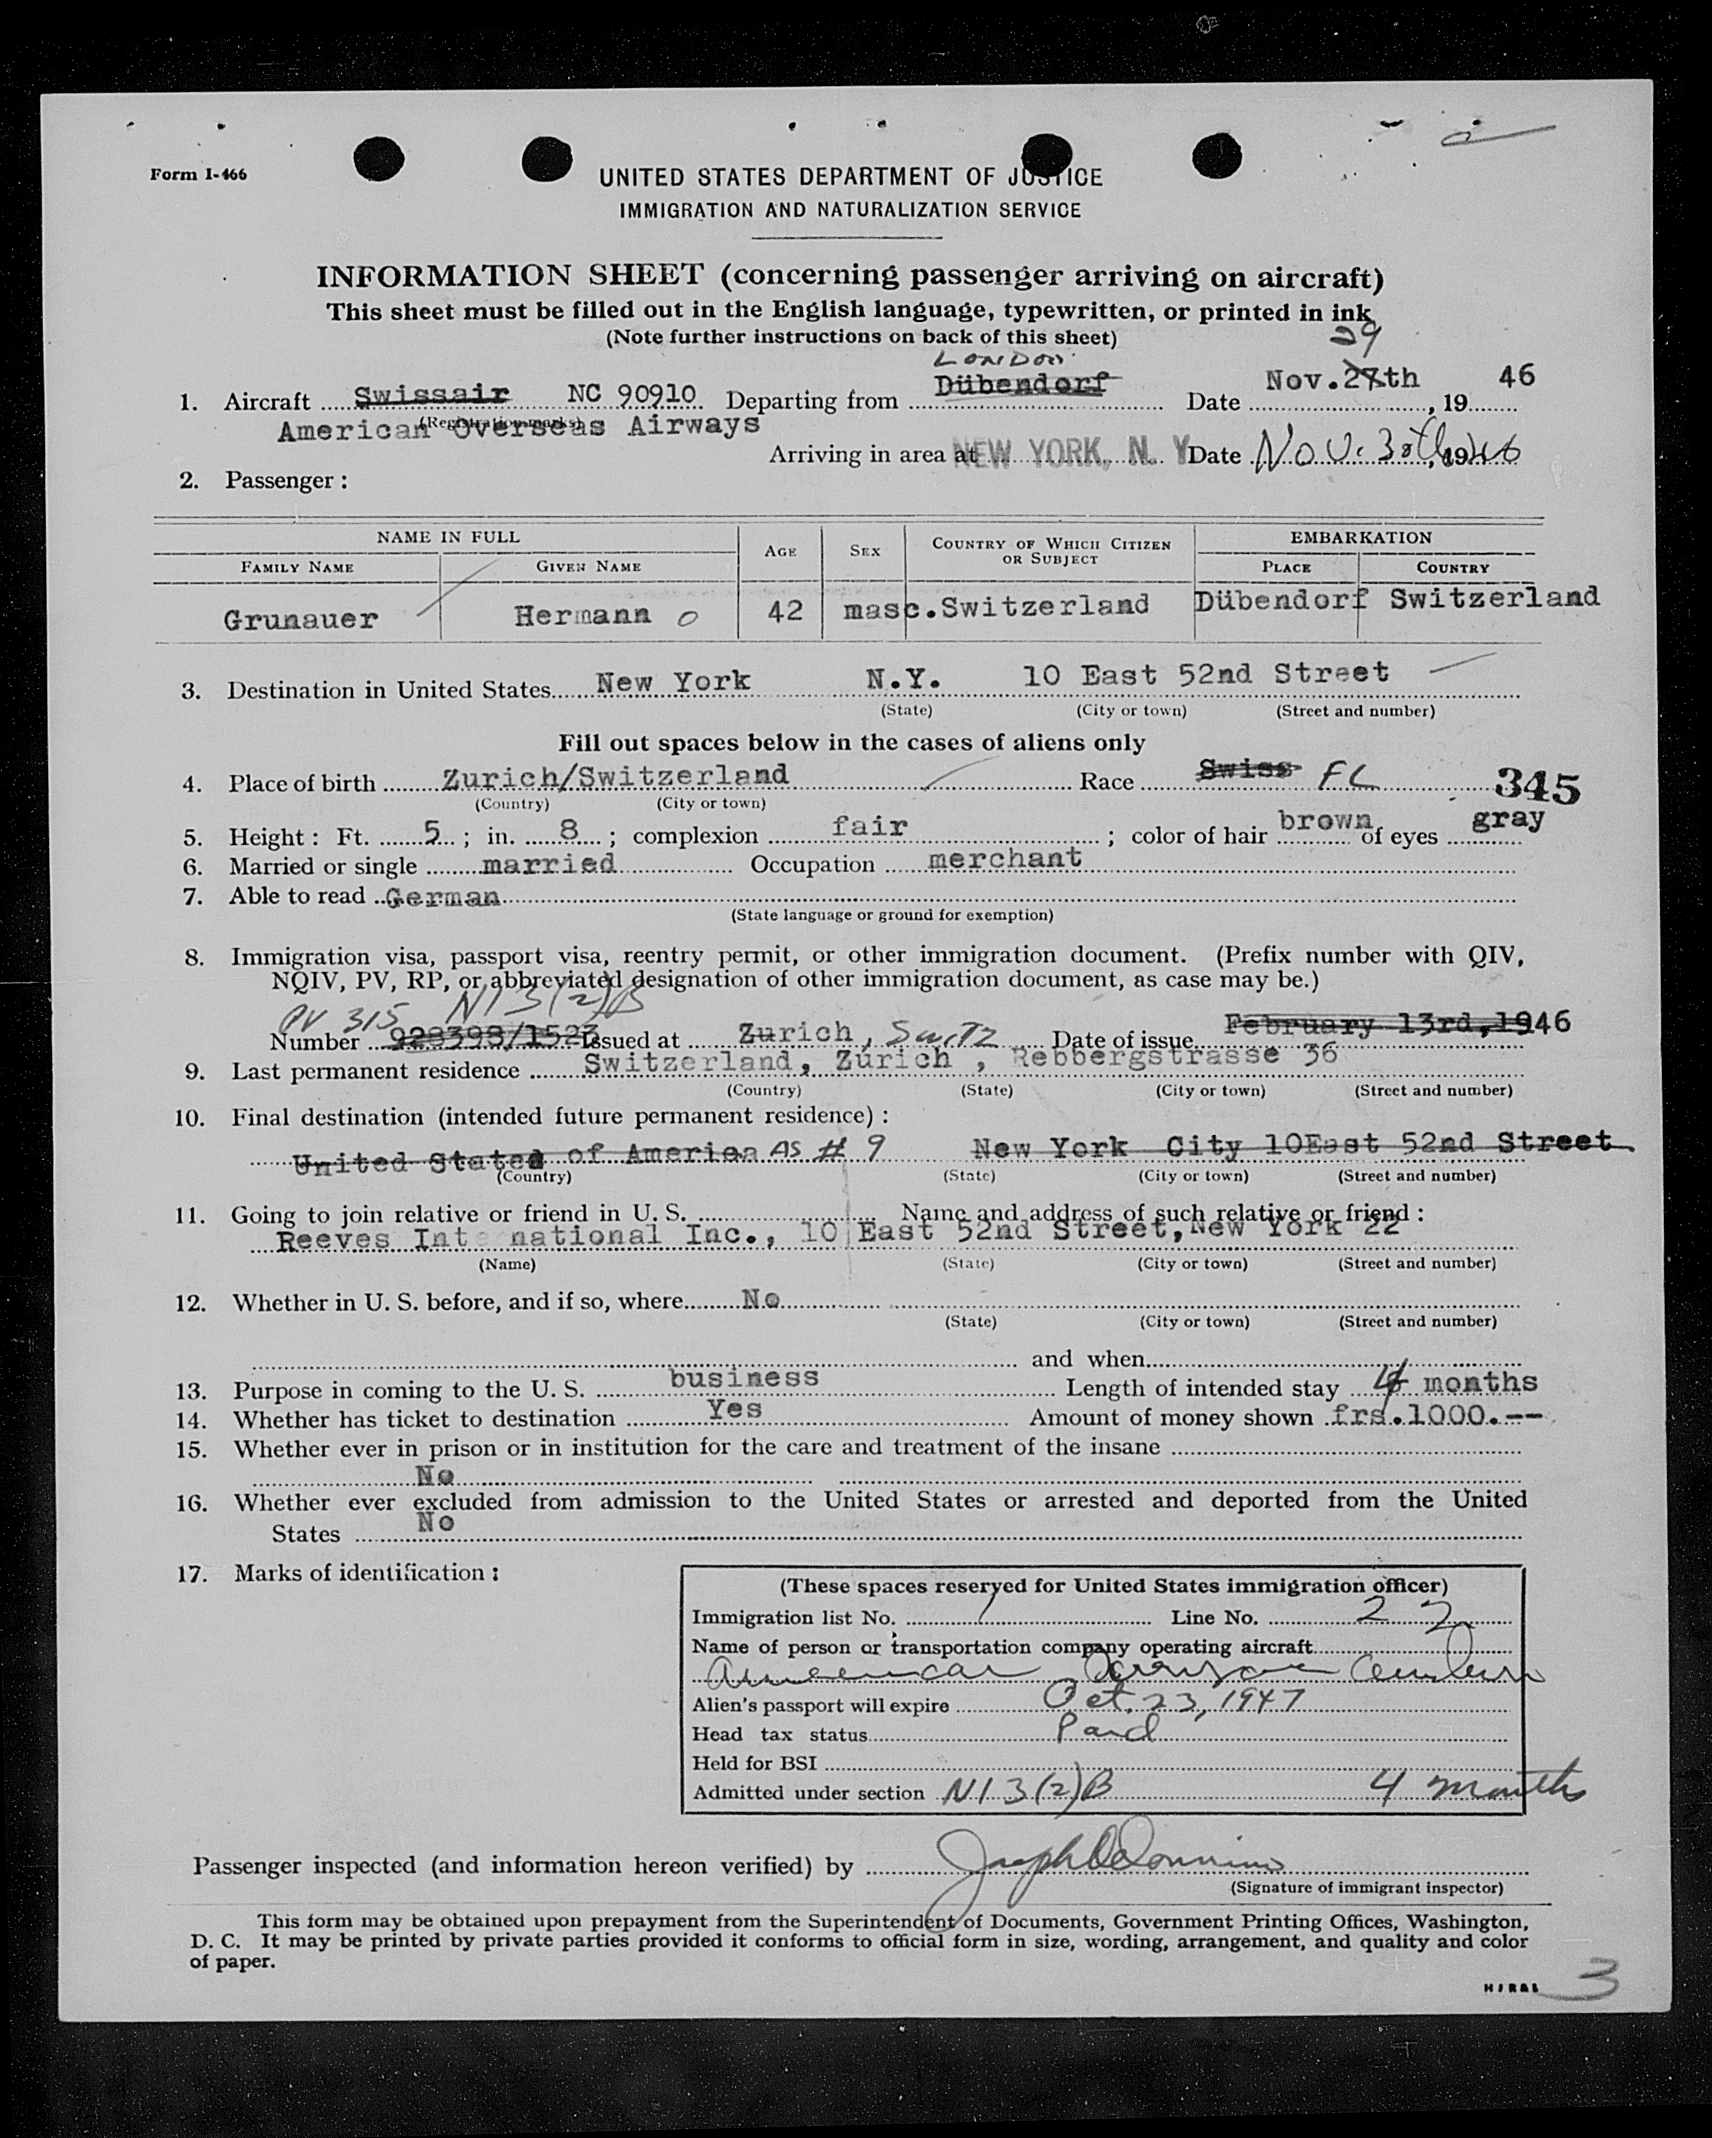 Form I-466
UNITED STATES DEPARTMENT OF JUSTICE
IMMIGRATION AND NATURALIZATION SERVICE
INFORMATION SHEET (concerning passenger arriving on aircraft)
This sheet must be filled out in the English language, typewritten, or printed in ink
(Note further instructions on back of this sheet)
LONDON 29
1. Aircraft Swissair NC 90910 Departing from Dübendorf Date Nov. 27th, 1946
(Registration marks)
American Overseas Airways
Arriving in area at NEW YORK, N. Y. Date Nov. 30th, 1946
2. Passenger:
NAME IN FULL AGE SEX COUNTRY OF WHICH CITIZEN OR SUBJECT EMBARKATION
FAMILY NAME GIVEN NAME PLACE COUNTRY
Grunauer Hermann 42 masc. Switzerland Dübendorf Switzerland
3. Destination in United States New York N.Y. 10 East 52nd Street
(State) (City or town) (Street and number)
Fill out spaces below in the cases of aliens only
4. Place of birth Zurich/Switzerland Race Swiss FL 345
(Country) (City or town)
5. Height: Ft. 5; in. 8; complexion fair; color of hair brown of eyes gray
6. Married or single married Occupation merchant
7. Able to read German
(State language or ground for exemption)
8. Immigration visa, passport visa, reentry permit, or other immigration document. (Prefix number with QIV,
NQIV, PV, RP, or abbreviated designation of other immigration document, as case may be.)
PV 315 NI 3(2)B
Number 928398/1523 Issued at Zurich, Switz Date of issue February 13rd, 1946
9. Last permanent residence Switzerland, Zurich, Rebbergstrasse 36
(Country) (State) (City or town) (Street and number)
10. Final destination (intended future permanent residence):
United States of America AS # 9 New York City 10East 52nd Street
(Country) (State) (City or town) (Street and number)
11. Going to join relative or friend in U. S. Name and address of such relative or friend:
Reeves International Inc., 10 East 52nd Street, New York 22
(Name) (State) (City or town) (Street and number)
12. Whether in U. S. before, and if so, where No
(State) (City or town) (Street and number)
and when
13. Purpose in coming to the U. S. business Length of intended stay 4 months
14. Whether has ticket to destination Yes Amount of money shown frs. 1000.--
15. Whether ever in prison or in institution for the care and treatment of the insane
No
16. Whether ever excluded from admission to the United States or arrested and deported from the United
States No
17. Marks of identification:
(These spaces reserved for United States immigration officer)
Immigration list No. 1 Line No. 22
Name of person or transportation company operating aircraft
American Overseas Airlines
Alien's passport will expire Oct. 23, 1947
Head tax status Paid
Held for BSI
Admitted under section NI 3(2)B 4 months
Passenger inspected (and information hereon verified) by
(Signature of immigrant inspector)
This form may be obtained upon prepayment from the Superintendent of Documents, Government Printing Offices, Washington,
D. C. It may be printed by private parties provided it conforms to official form in size, wording, arrangement, and quality and color
of paper.
3